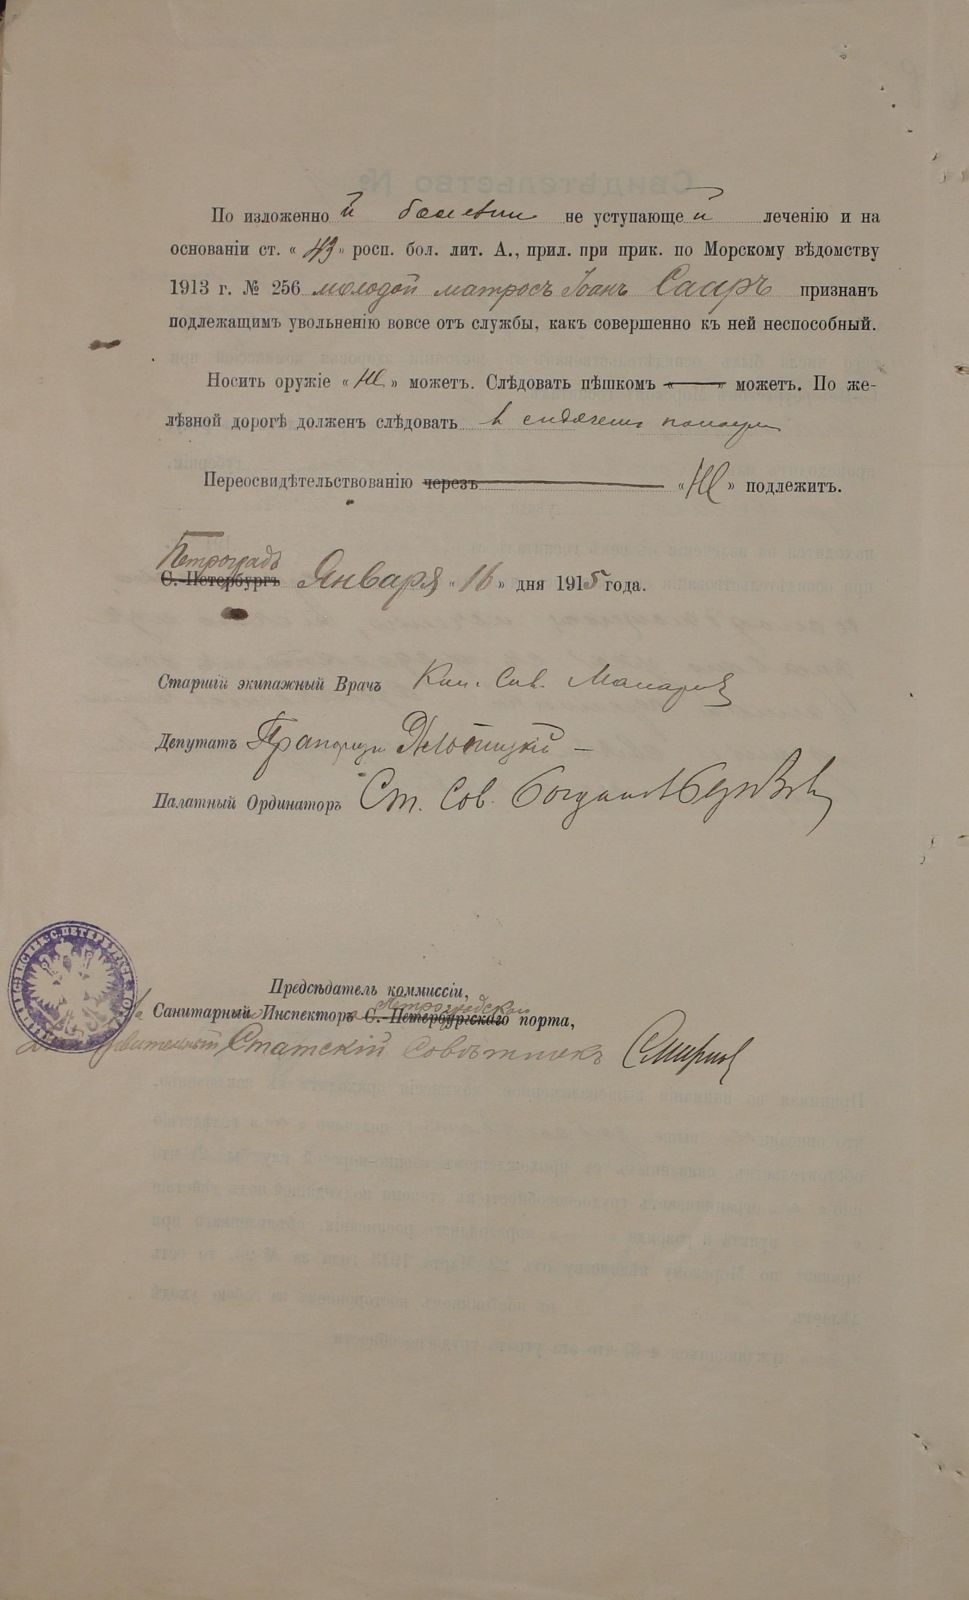 По изложенной болезни не уступающей леченію и на
основаніи ст. «43» росп. бол. лит. А., прил. при прик. по Морскому вѣдомству
1913 г. № 256 молодой матросъ Іоанъ Сааръ признанъ
подлежащимъ увольненію вовсе отъ службы, какъ совершенно къ ней неспособный.
Носить оружіе «не» можетъ. Слѣдовать пѣшкомъ «—» можетъ. По же-
лѣзной дорогѣ долженъ слѣдовать в сидячем положении
Переосвидѣтельствованію черезъ «не» подлежитъ.
Петроградъ
С.-Петербургъ Января «16» дня 1915 года.
Старшій экипажный Врачъ Кол. Сов.
Депутатъ Прапорщик
Палатный Ординаторъ Ст. Сов.
Предсѣдатель коммиссіи,
Петроградскаго
Санитарный Инспекторъ С.-Петербургскаго порта,
Действительный Статскій Совѣтникъ Смирнов